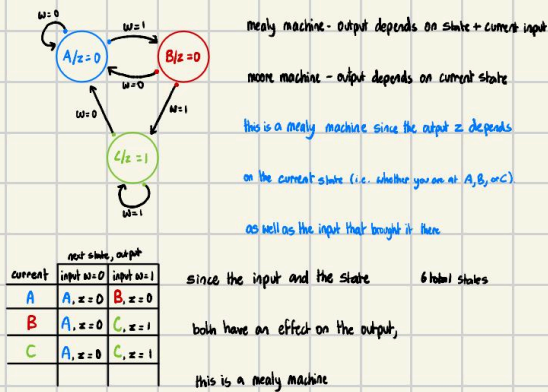 w=0
w=1
A/z=0
B/z=0
w=0
w=0
w=1
C/z=1
w=1
mealy machine - output depends on state + current input
moore machine - output depends on current state
this is a mealy machine since the output z depends
on the current state (i.e. whether you are at A, B, or C)
as well as the input that brought it there
next state, output
current input w=0 input w=1
A A, z=0 B, z=0
B A, z=0 C, z=1
C A, z=0 C, z=1
since the input and the state
both have an effect on the output,
this is a mealy machine
6 total states